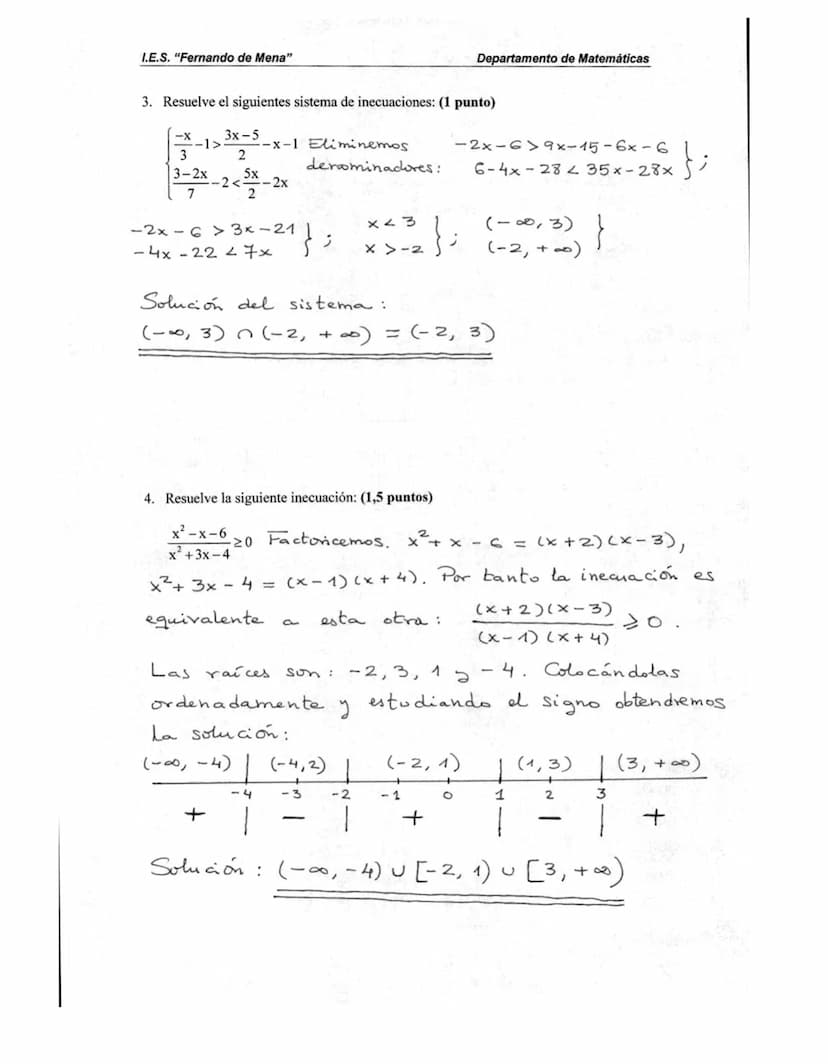 I.E.S. "Fernando de Mena" Departamento de Matemáticas
3. Resuelve el siguientes sistema de inecuaciones: (1 punto)
{ -x/3 -1 > 3x-5/2 -x-1 Eliminemos -2x-6>9x-15-6x-6 } ;
3-2x/7 -2 < 5x/2 -2x denominadores: 6-4x-28<35x-28x
-2x-6 > 3x-21 } ; x<3 } ; (-∞, 3) }
-4x-22 < 7x x>-2 (-2, +∞)
Solución del sistema:
(-∞, 3) ∩ (-2, +∞) = (-2, 3)
4. Resuelve la siguiente inecuación: (1,5 puntos)
x²-x-6/x²+3x-4 ≥0 Factoricemos. x²+x-6 = (x+2)(x-3),
x²+3x-4 = (x-1)(x+4). Por tanto la inecuación es
equivalente a esta otra: (x+2)(x-3)/(x-1)(x+4) ⩾ 0.
Las raíces son: -2, 3, 1 y -4. Colocándolas
ordenadamente y estudiando el signo obtendremos
la solución:
(-∞, -4) | (-4,2) | (-2, 1) | (1, 3) | (3, +∞)
-4 -3 -2 -1 0 1 2 3
+ | - | + | - | +
Solución: (-∞, -4) ∪ [-2, 1) ∪ [3, +∞)